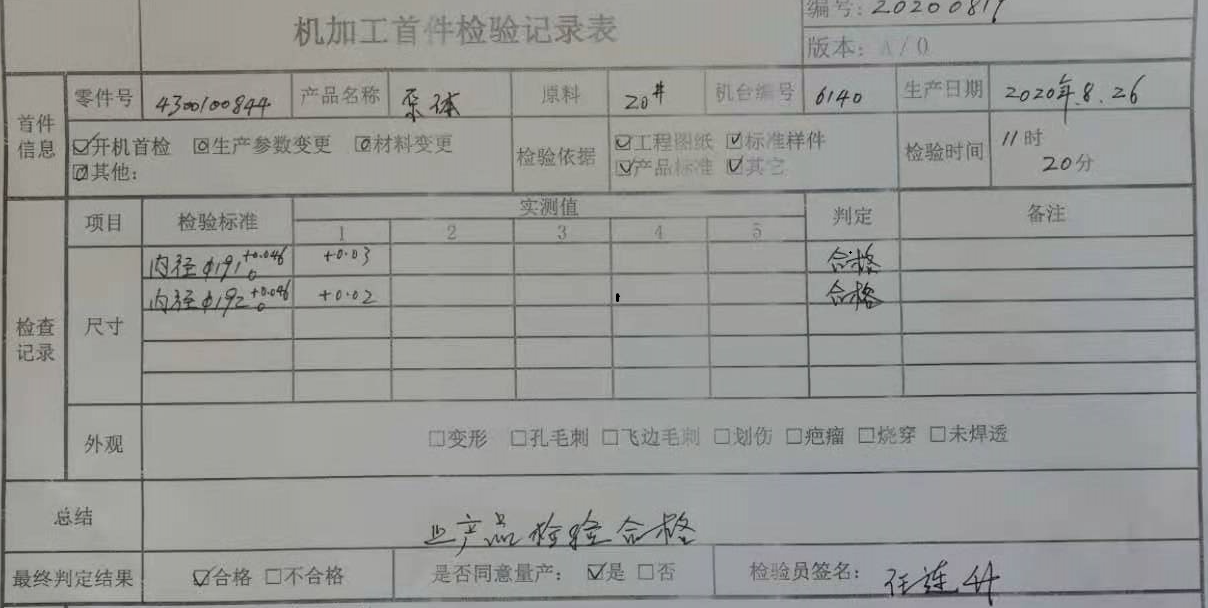 机加工首件检验记录表
编号: 20200819
版本: A/0
首件信息
零件号 4300100844 产品名称 泵体 原料 20# 机台编号 6140 生产日期 2020年.8.26
☑开机首检 ☑生产参数变更 ☑材料变更
☑其他:
检验依据
☑工程图纸 ☑标准样件
☑产品标准 ☑其它
检验时间 11时
20分
检查记录
项目 检验标准 实测值 判定 备注
1 2 3 4 5
尺寸
内径φ191 +0.046 0 +0.03 合格
内径φ192 +0.046 0 +0.02 合格
外观 □变形 □孔毛刺 □飞边毛刺 □划伤 □疤瘤 □烧穿 □未焊透
总结
产品检验合格
最终判定结果 ☑合格 □不合格 是否同意量产: ☑是 □否 检验员签名: 任连升